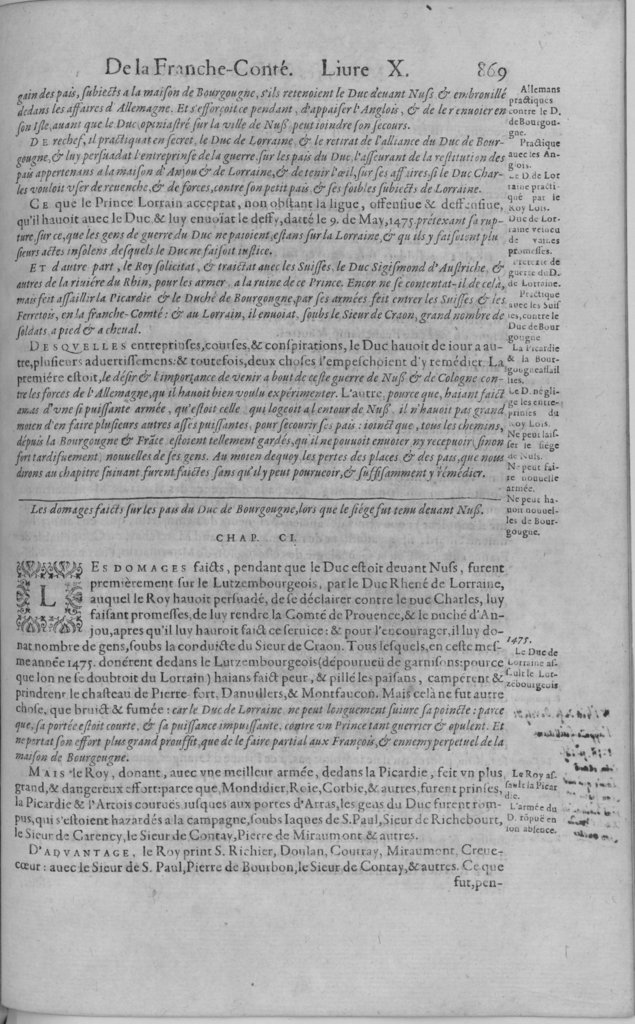 De la Franche-Conté. Liure X. 869
gain des païs, subiects a la maison de Bourgougne, s'ils retenoient le Duc deuant Nuß & embrouillé
dedans les affaires d'Allemagne. Et s'efforçoit ce pendant, d'appaiser l'Anglois, & de le renuoier en
son Isle, auant que le Duc opiniastré sur la ville de Nuß peut ioindre son secours.
DE rechef, il practiquat en secret, le Duc de Lorraine, & le retirat de l'alliance du Duc de Bour-
gougne, & luy persuadat l'entreprinse de la guerre, sur les païs du Duc, l'asseurant de la restitution des
païs appertenans a la maison d'Anjou & de Lorraine, & de tenir l'œil, sur ses affaires, si le Duc Char-
les vouloit vser de reuenche, & de forces, contre son petit païs, & ses foibles subiects de Lorraine.
CE que le Prince Lorrain acceptat, non obstant la ligue, offensiue & deffensiue,
qu'il hauoit auec le Duc, & luy enuoiat le deffy, datté le 9. de May, 1475. prétexant sa rup-
ture, sur ce, que les gens de guerre du Duc ne paioient, estans sur la Lorraine, & qu'ils y faisoient plu
sieurs actes insolens, desquels le Duc ne faisoit iustice.
ET d'autre part, le Roy solicitat, & traictat auec les Suisses, le Duc Sigismond d'Austriche, &
autres de la riuiére du Rhin, pour les armer, a la ruine de ce Prince. Encor ne se contentat-il de celà,
mais feit assaillir la Picardie & le Duché de Bourgougne, par ses armées, feit entrer les Suisses & les
Ferretois, en la franche-Comté: & au Lorrain, il enuoiat, soubs le Sieur de Craon, grand nombre de
soldats a pied & a cheual.
DESQVELLES entreprinses, courses, & conspirations, le Duc hauoit de iour a au-
tre, plusieurs aduertissemens: & toutefois, deux choses l'empeschoient d'y remédier. La
premiére estoit, le désir & l'importance de venir a bout de ceste guerre de Nuß & de Cologne con-
tre les forces de l'Allemagne, qu'il hauoit bien voulu expérimenter. L'autre, pource que, haiant faict
amas d'vne si puissante armée, qu'estoit celle qui logeoit a l'entour de Nuß, il n'hauoit pas grand
moien d'en faire plusieurs autres asses puissantes, pour secourir ses païs: ioinct que, tous les chemins,
dépuis la Bourgougne & Frãce estoient tellement gardés, qu'il ne pouuoit enuoier ny recepuoir, sinon
fort tardifuement, nouuelles de ses gens. Au moien dequoy, les pertes des places & des païs, que nous
dirons au chapitre suiuant furent faictes sans qu'il y peut pourueoir, & suffisamment y rémédier.
Allemans
practiqués
contre le D.
de Bourgou-
gne.
Practique
auec les An-
glois.
Le D. de Lor
raine practi
qué par le
Roy Loïs.
Duc de Lor-
raine vaincu
de vaines
promesses.
guerre du D.
de Lorraine.
Practique
auec les Suis
ses, contre le
Duc de Bour
gougne
La Picardie
& la Bour-
gougne assail
lies.
Le D. négli-
ge les entre-
prinses du
Roy Loïs.
Ne peut lais-
ser le siége
de Nuss.
Ne peut fai-
re nouuelle
armée.
Ne peut ha-
uoir nouuel-
les de Bour-
gougne.
Les domages faicts sur les païs du Duc de Bourgougne, lors que le siége fut tenu deuant Nuß.
CHAP. CI.
LES DOMAGES faicts, pendant que le Duc estoit deuant Nuss, furent
premiérement sur le Lutzembourgeois, par le Duc Rhené de Lorraine,
auquel le Roy hauoit persuadé, de se déclairer contre le duc Charles, luy
faisant promesses, de luy rendre la Comté de Prouence, & le duché d'An-
jou, apres qu'il luy hauroit faict ce seruice: & pour l'encourager, il luy do-
nat nombre de gens, soubs la conduicte du Sieur de Craon. Tous lesquels, en ceste mes-
me année 1475. donérent dedans le Lutzembourgeois (dépourueü de garnisons: pource
que lon ne se doubtoit du Lorrain) haians faict peur, & pillé les païsans, campérent &
prindrent le chasteau de Pierre-fort, Danuillers, & Montfaucon. Mais celà ne fut autre
chose, que bruict & fumée: car le Duc de Lorraine, ne peut longuement suiure sa poincte: parce
que, sa portée estoit courte, & sa puissance impuissante, contre vn Prince tant guerrier & opulent. Et
ne portat son effort plus grand prouffit, que de le faire partial aux François, & ennemy perpetuel de la
maison de Bourgougne.
MAIS le Roy, donant, auec vne meilleur armée, dedans la Picardie, feit vn plus
grand, & dangereux effort: parce que, Mondidier, Roie, Corbie, & autres, furent prinses,
la Picardie & l'Artois courues iusques aux portes d'Arras, les gens du Duc furent rom-
pus, qui s'estoient hazardés a la campagne, soubs Iaques de S. Paul, Sieur de Richebourt,
le Sieur de Carency, le Sieur de Contay, Pierre de Miraumont & autres.
D'ADVANTAGE, le Roy print S. Richier, Doulan, Coutray, Miraumont, Creue-
cœur: auec le Sieur de S. Paul, Pierre de Bourbon, le Sieur de Contay, & autres. Ce que
fut, pen-
1475.
Le Duc de
Lorraine as-
sault le Lut-
zebourgeois
Le Roy as
sault la Picar
die.
L'armée du
D. rõpue en
son absence.